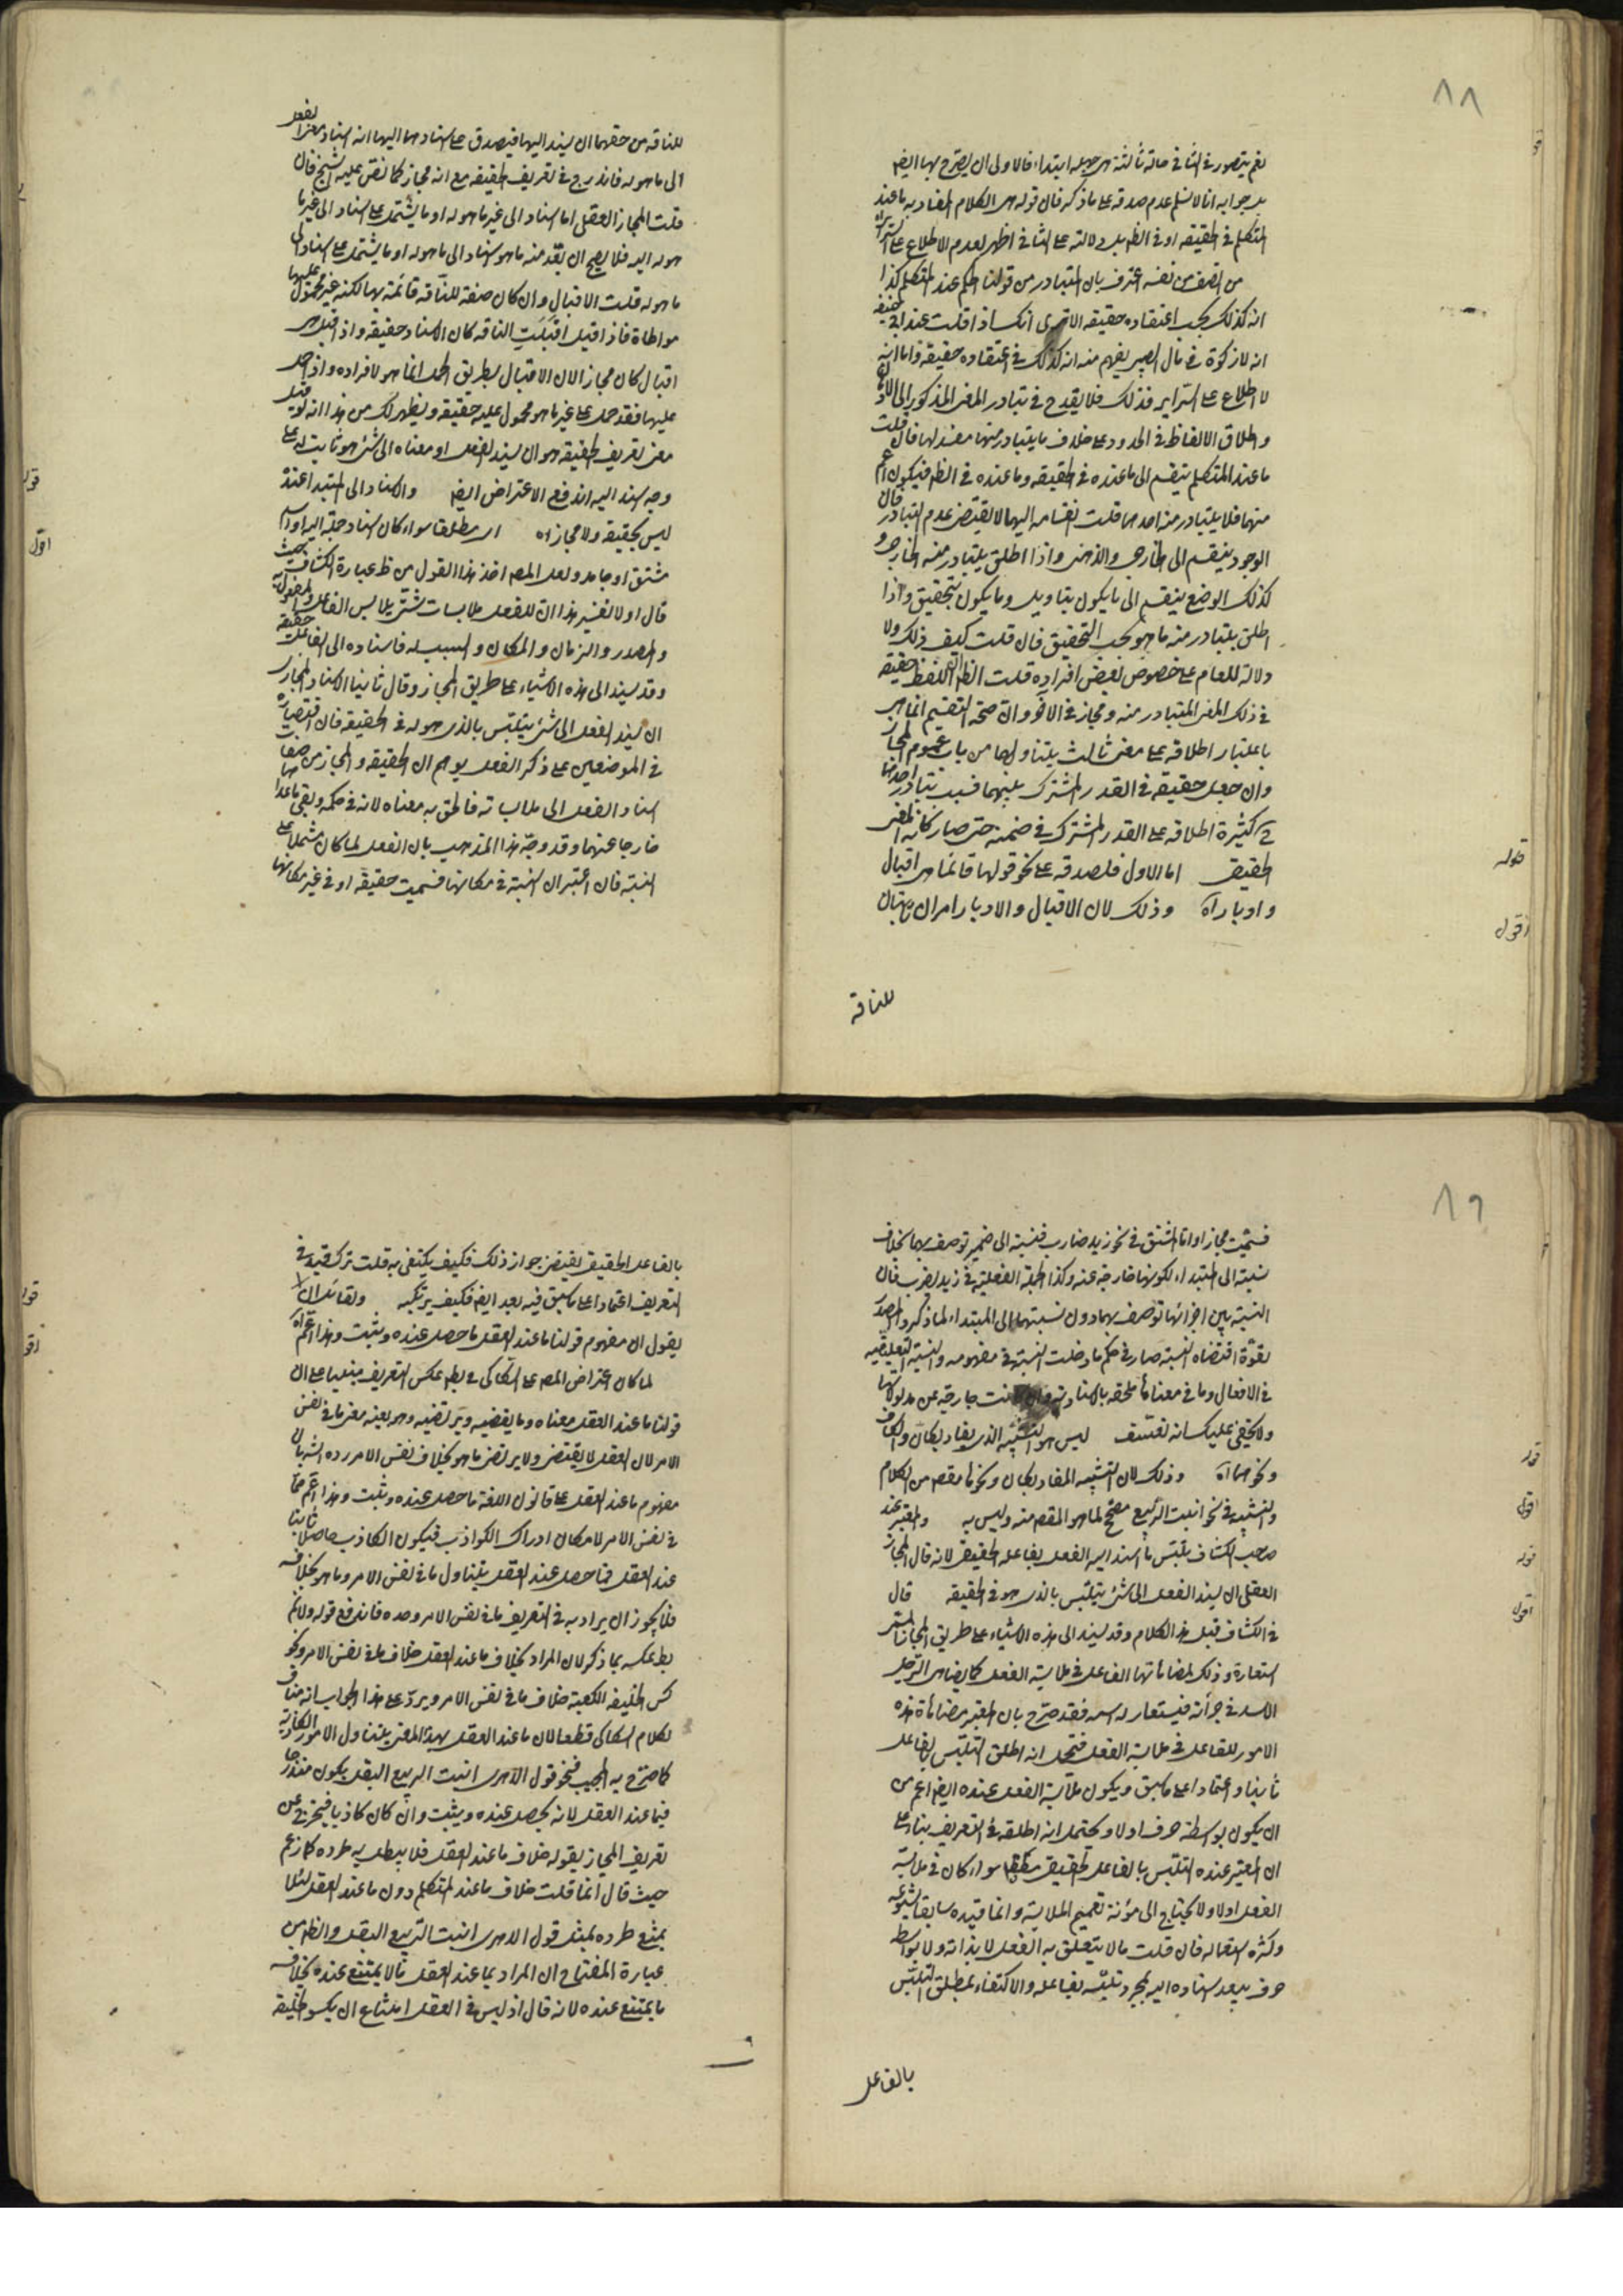 ٨٨
نعم يتصور في الثاني حالة ثالثة هي جهله ابتداء فالاولى ان يصرح بها ايضا
يرد جوابه انا لا نسلم عدم صدقه على ما ذكر فان قوله هي الكلام المفاد به ما عند
المتكلم في الحقيقة او في الظ بل دلالته على الثاني اظهر لعدم الاطلاع على السرائر
من انصف من نفسه اعترف بان المتبادر من قولنا الحكم عند المتكلم كذا
انه كذلك بحسب اعتقاده حقيقة الا ترى انك اذا قلت عند ابي حنيفة
انه لا زكوة في مال الصبي يفهم منه انه كذلك في اعتقاده حقيقة واما انه
لا اطلاع على السراير فذلك فلا يقدح في تبادر المعنى المذكور الى
واطلاق الالفاظ في الحدود على خلاف ما يتبادر منها مفسد لها فان قلت
ما عند المتكلم ينقسم الى ما عنده في الحقيقة وما عنده في الظ فيكون اعم
منهما فلا يتبادر منه احدهما قلت انقسامه اليهما لا يقتضي عدم التبادر فان
الوجود ينقسم الى الخارجي والذهني واذا اطلق يتبادر منه الخارجي و
كذلك الوضع ينقسم الى ما يكون بتاويل وما يكون بتحقيق واذا
اطلق يتبادر منه ما هو بحسب التحقيق فان قلت كيف ذلك ولا
دلالة للعام على خصوص بعض افراده قلت الظ ان اللفظ حقيقة
في ذلك المعنى المتبادر منه ومجاز في الآخر وان صحة التقسيم انما هي
باعتبار اطلاقه على معنى ثالث يتناولهما من باب عموم المجاز
وان جعل حقيقة في القدر المشترك بينهما فسبب تبادر احدهما
كثرة اطلاقه على القدر المشترك في ضمنه حتى صار كانه المعنى
الحقيقي اما الاول فلصدقه على نحو قولها فانما هي اقبال
وادبار اه وذلك لان الاقبال والادبار امران ثابتان
للناقة
قوله
اقول
للناقة من حقهما ان يسند اليها فيصدق على اسنادهما اليها انه اسناد معنى الفعل
الى ما هو له فاندرج في تعريف الحقيقة مع انه مجاز كما نص عليه الشيخ فان
قلت المجاز العقلي اما اسناد الى غير ما هو له او ما يشتمل على اسناد الى غير ما
هو له اليه فلا يصح ان يعد منه ما هو اسناد الى ما هو له او ما يشتمل على اسناد الى
ما هو له قلت الاقبال وان كان صفة للناقة قائمة بها لكنه غير محمول عليها
مواطاة فاذا قيل اقبلت الناقة كان الاسناد حقيقة واذا قيل هي
اقبال كان مجازا لان الاقبال بطريق الحمل انما هو لافراده واذا حمل
عليها فقد حمل على غير ما هو محمول عليه حقيقة ويظهر لك من هذا انه لو قيل
معنى تعريف الحقيقة هو ان يسند الفعل او معناه الى شئ هو ثابت له على
وجه اسند اليه اندفع الاعتراض ايضا والاسناد الى المبتدا عنده
ليس بحقيقة ولا مجاز اه اى مطلقا سواء كان اسناد جملة اليه او اسم
مشتق او جامد ولعل المصـ اخذ هذا القول من ظ عبارة الكشاف حيث
قال اولا تفسير هذا ان للفعل ملابسات شتى يلابس الفاعل والمفعول به
والمصدر والزمان والمكان والسبب له فاسناده الى الفاعل حقيقة
وقد يسند الى هذه الاشياء على طريق المجاز وقال ثانيا الاسناد المجازي
ان يسند الفعل الى شئ يتلبس بالذي هو له في الحقيقة فان اقتصاره
في الموضعين على ذكر الفعل يوهم ان الحقيقة والمجاز من صفات
اسناد الفعل الى ملابساته فالحق به معناه لانه في حكمه وبقي ما عداهما
خارجا عنهما وقد وجه هذا المذهب بان الفعل لما كان مشتملا على
النسبة فان اعتبر ان النسبة في مكانها فسميت حقيقة او في غير مكانها
قوله
اقول
٨٩
فسميت مجازا واما المشتق في نحو زيد ضارب فنسبته الى ضميره توصف بهما بخلاف
نسبته الى المبتداء لكونها خارجة عنه وكذا الجملة الفعلية في زيد يضرب فان
النسبة بين اجزائها توصف بهما دون نسبتهما الى المبتداء لما ذكر والمصدر
لقوة اقتضاه النسبة صار في حكم ما دخلت النسبة في مفهومه والنسبة التعليقية
في الافعال وما في معناها ملحقة بالاسنادية وان كانت خارجة عن مدلولاتها
ولا يخفى عليك انه تعسف ليس هو التشبيه الذي يفاد بكان والكاف
ونحوهما اه وذلك لان التشبيه المفاد بكان ونحوها مقصـ من الكلام
والتشبيه في نحو انبت الربيع مصحح لما هو المقصـ منه وليس به والمعتبر عند
صاحب الكشاف تلبس ما اسند اليه الفعل بفاعله الحقيقي لانه قال المجاز
العقلي ان يسند الفعل الى شئ يتلبس بالذي هو في الحقيقة قال
في الكشاف قبل هذا الكلام وقد يسند الى هذه الاشياء على طريق المجاز المسمى
استعارة وذلك لمضاهاتها الفاعل في ملابسة الفعل كما يضاهي الرجل
الاسد في جرأته فيستعار له اسمه فقد صرح بان المعتبر مضاهاة هذه
الامور للفاعل في ملابسة الفعل فيحتمل انه اطلق التلبس بالفاعل
ثانيا واعتمادا على ما سبق ويكون ملابسة الفعل عنده ايضا اعم من
ان يكون بواسطة حرف او لا ويحتمل انه اطلقه في التعريف بناء على
ان المعتبر عنده التلبس بالفاعل الحقيقي مطلقا سواء كان في ملابسة
الفعل اولا ولا يحتاج الى مؤنة تعميم الملابسة وانما قيده سابقا لشيوعه
وكثرة استعماله فان قلت ما لا يتعلق به الفعل لا بذاته ولا بواسطة
حرف يبعد اسناده اليه بمجرد تلبسه بفاعله والاكتفاء بمطلق التلبس
بالفاعل
قوله
اقول
قوله
اقول
بالفاعل الحقيقي يقتضي جواز ذلك فكيف يكتفى به قلت ترك قيد في
التعريف اعتمادا على ما سبق فيه بعد ايضا فكيف يرتكبه ولقائل ان
يقول ان مفهوم قولنا ما عند العقل ما حصل عنده وثبت وهذا اعم اه
لما كان اعتراض المصـ على السكاكي في بطـ عكس التعريف مبنيا على ان
قولنا ما عند العقل معناه وما يقتضيه ويرتضيه وهو بعينه معنى ما في نفس
الامر لان العقل لا يقتضي ولا يرتضي ما هو بخلاف نفس الامر رده الشـ بان
مفهوم ما عند العقل على قانون اللغة ما حصل عنده وثبت وهذا اعم مما
في نفس الامر لامكان ادراك الكواذب فيكون الكاذب حاصلا ثابتا
عند العقل فما حصل عند العقل يتناول ما في نفس الامر وما هو بخلافه
فلا يجوز ان يراد به في التعريف ما في نفس الامر وحده فاندفع قوله ولا تم
بطـ عكسه بما ذكر لان المراد بخلاف ما عند العقل خلاف ما في نفس الامر ونحو
كسى الخليفة الكعبة خلاف ما في نفس الامر ويرد على هذا الجواب انه مناف
لكلام السكاكي قطعا لان ما عند العقل بهذا المعنى يتناول الامور الكاذبة
كما صرح به المجيب فنحو قول الدهري انبت الربيع البقل يكون مندرجا
فيما عند العقل لانه يحصل عنده ويثبت وان كان كاذبا فيخرج عن
تعريف المجاز بقوله خلاف ما عند العقل فلا يبطل به طرده كما زعم
حيث قال انما قلت خلاف ما عند المتكلم دون ما عند العقل لئلا
يمتنع طرده بمثل قول الدهري انبت الربيع البقل والظ من
عبارة المفتاح ان المراد بما عند العقل ما لا يمتنع عنده بخلافه
ما يمتنع عنده لانه قال اذ ليس في العقل امتناع ان يكسو الخليفة
قوله
اقول